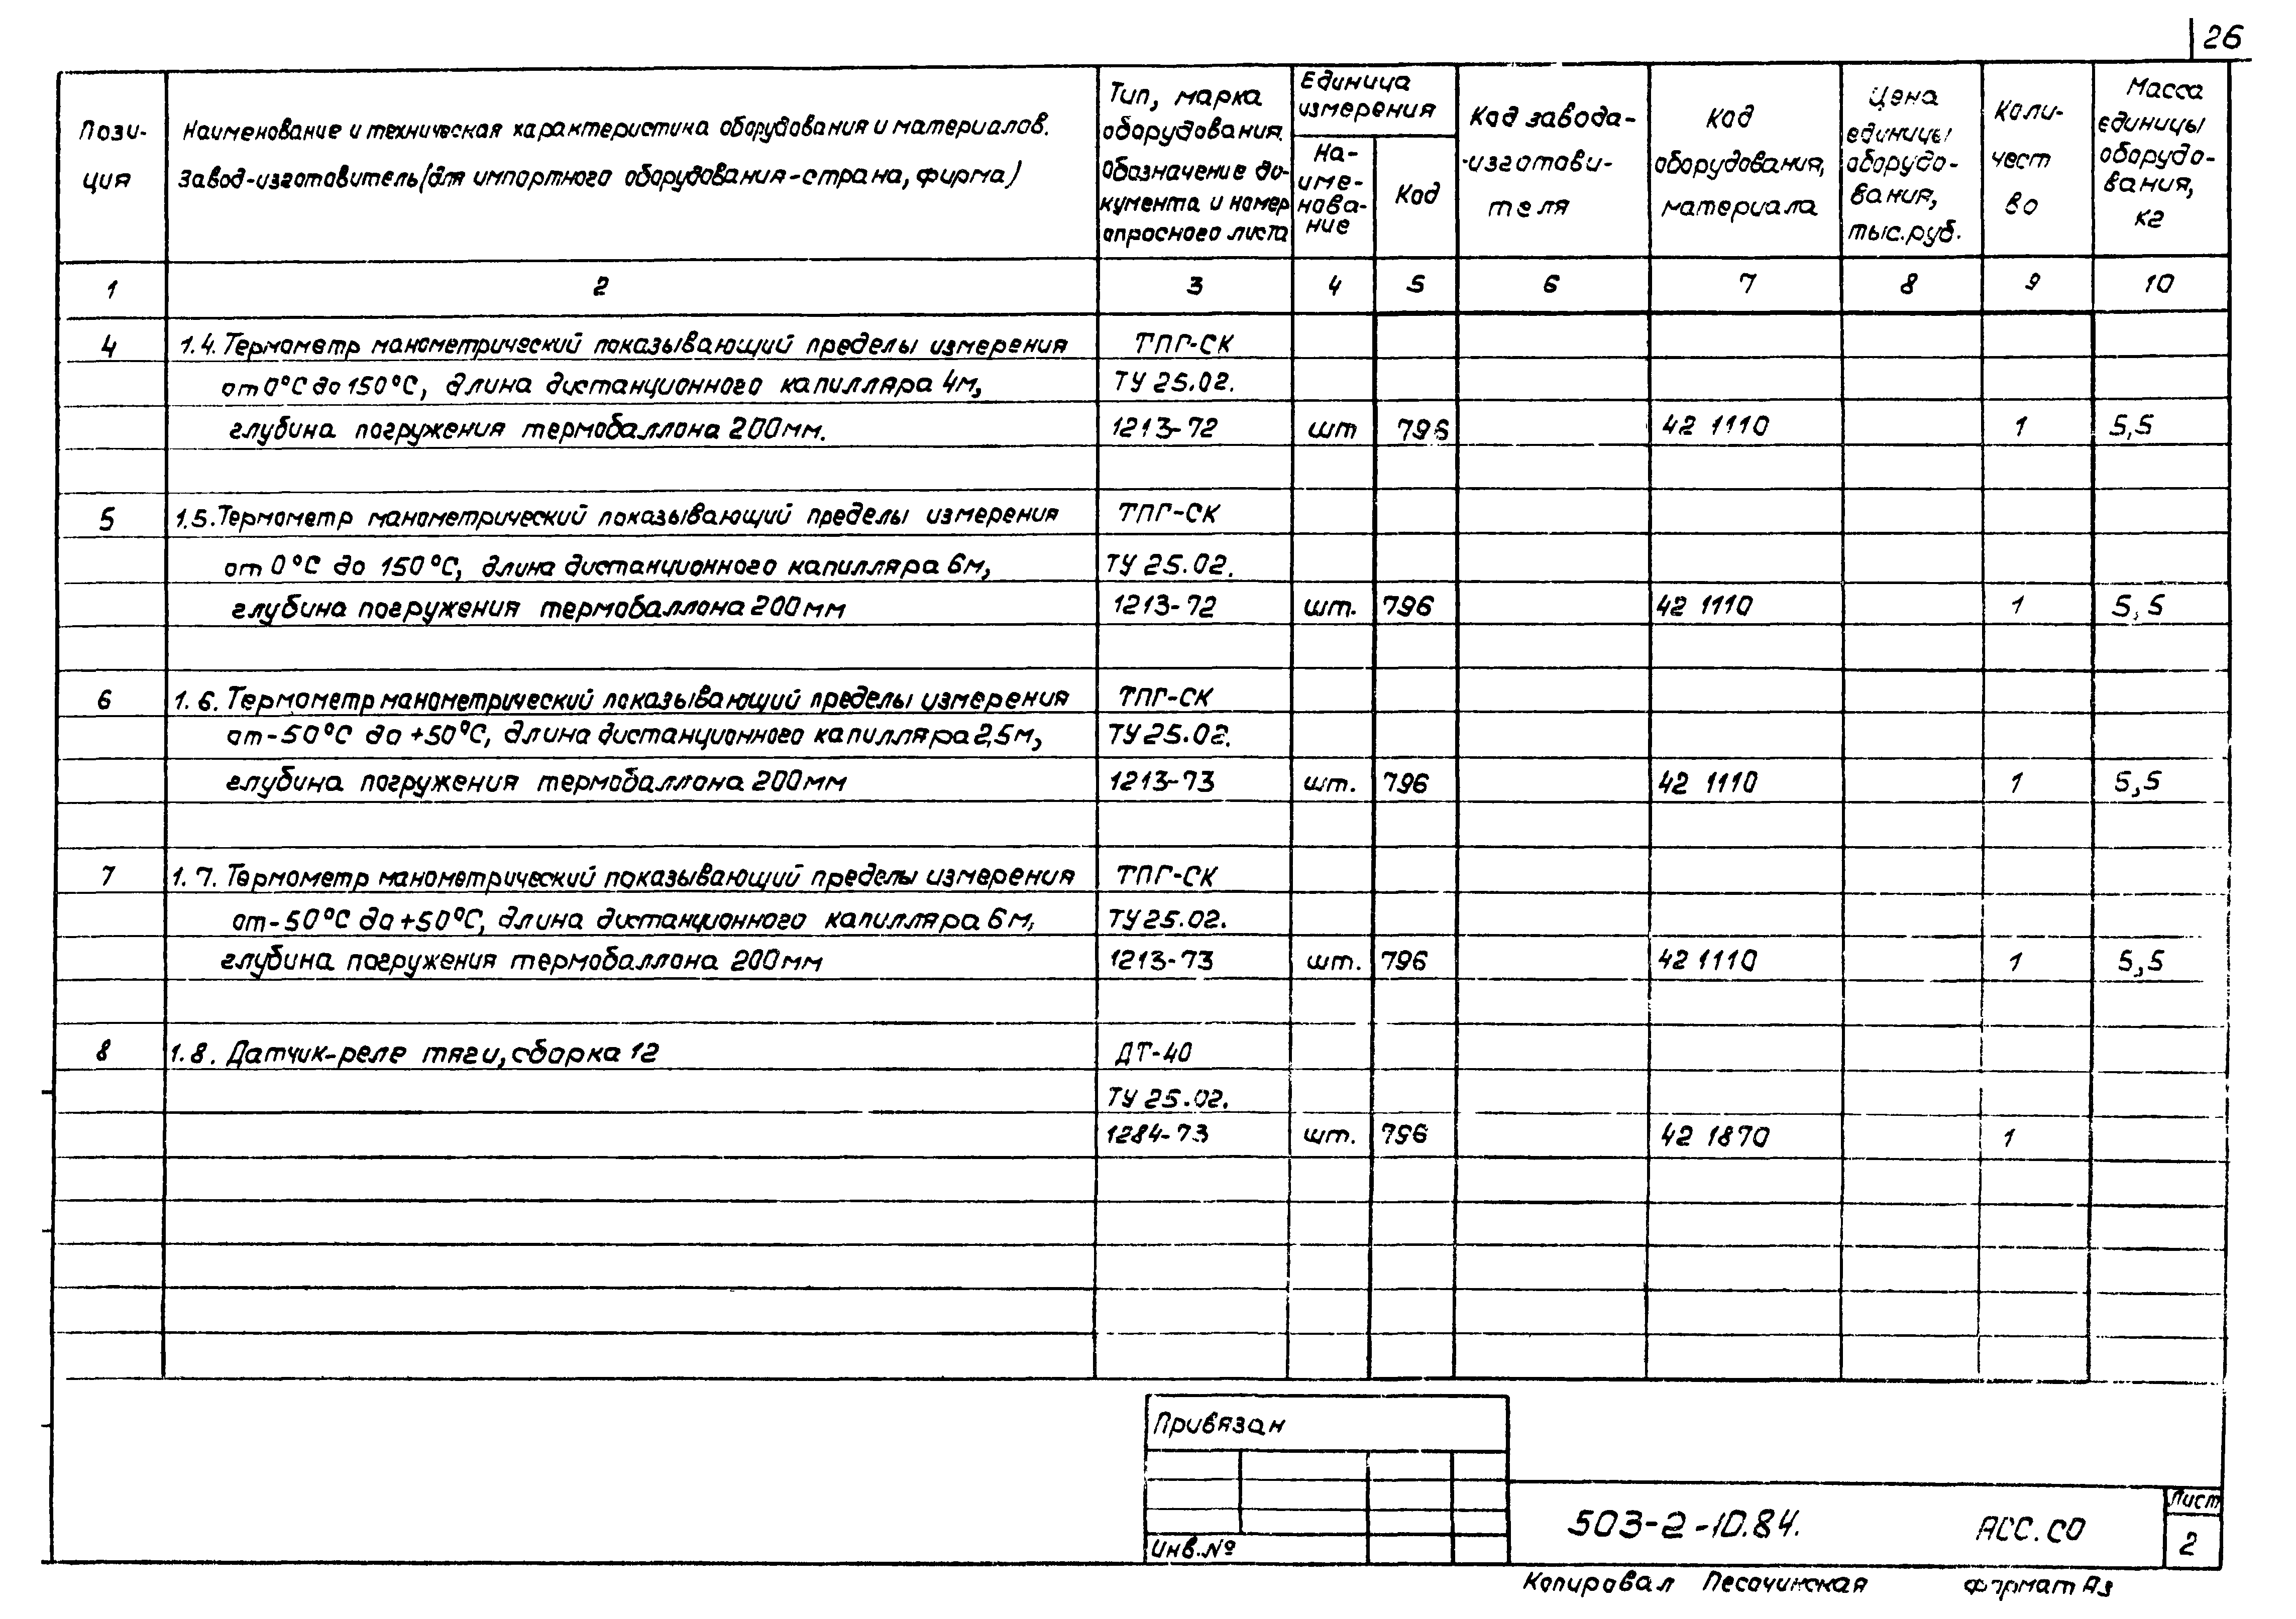 26
Пози-
ция
Наименование и техническая характеристика оборудования и материалов.
Завод-изготовитель/(для импортного оборудования-страна, фирма)
Тип, марка
оборудования.
Обозначение до-
кумента и номер
опросного листа
Единица
измерения
На-
име-
нова-
ние
Код
Код завода-
-изготови-
теля
Код
оборудования,
материала
Цена
единицы
оборудо-
вания,
тыс.руб.
Коли-
чест
во
Масса
единицы
оборудо-
вания,
кг
1 2 3 4 5 6 7 8 9 10
4 1.4. Термометр манометрический показывающий пределы измерения ТПГ-СК
от 0°С до 150°С, длина дистанционного капилляра 4м, ТУ 25.02.
глубина погружения термобаллона 200мм. 1213-72 шт 796 42 1110 1 5,5
5 1.5. Термометр манометрический показывающий пределы измерения ТПГ-СК
от 0°С до 150°С, длина дистанционного капилляра 6м, ТУ 25.02.
глубина погружения термобаллона 200мм 1213-72 шт. 796 42 1110 1 5,5
6 1.6. Термометр манометрический показывающий пределы измерения ТПГ-СК
от-50°С до +50°С, длина дистанционного капилляра 2,5м, ТУ 25.02.
глубина погружения термобаллона 200мм 1213-73 шт. 796 42 1110 1 5,5
7 1.7. Термометр манометрический показывающий пределы измерения ТПГ-СК
от-50°С до +50°С, длина дистанционного капилляра 6м, ТУ 25.02.
глубина погружения термобаллона 200мм 1213-73 шт. 796 42 1110 1 5,5
8 1.8. Датчик-реле тяги, сборка 12 ДТ-40
ТУ 25.02.
1284-73 шт. 796 42 1870 1
Привязан
Инв.№
503-2-10.84. АСС.СО
Лист
2
Копировал Песочинская формат А3